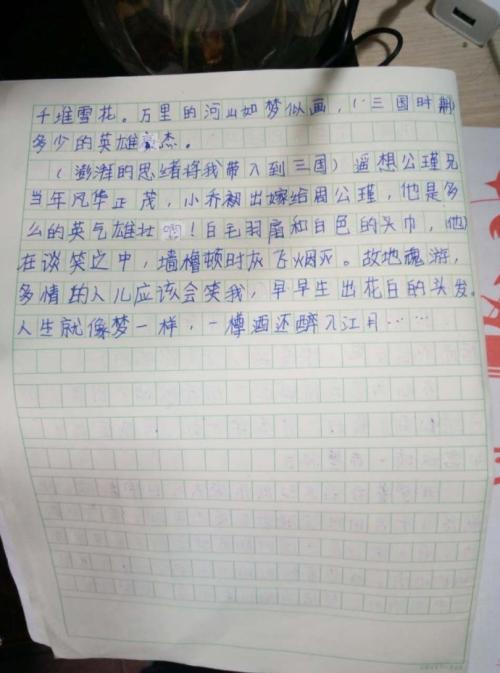 千堆雪花。万里的河山如梦似画，(三国时期)
多少的英雄豪杰。
(澎湃的思绪将我带入到三国)遥想公瑾兄
当年风华正茂，小乔初出嫁给周公瑾，他是多
么的英气雄壮啊！白毛羽扇和白色的头巾，(他)
在谈笑之中，墙橹顿时灰飞烟灭。故地魂游，
多情的人儿应该会笑我，早早生出花白的头发。
人生就像梦一样，一樽酒还醉入江月……